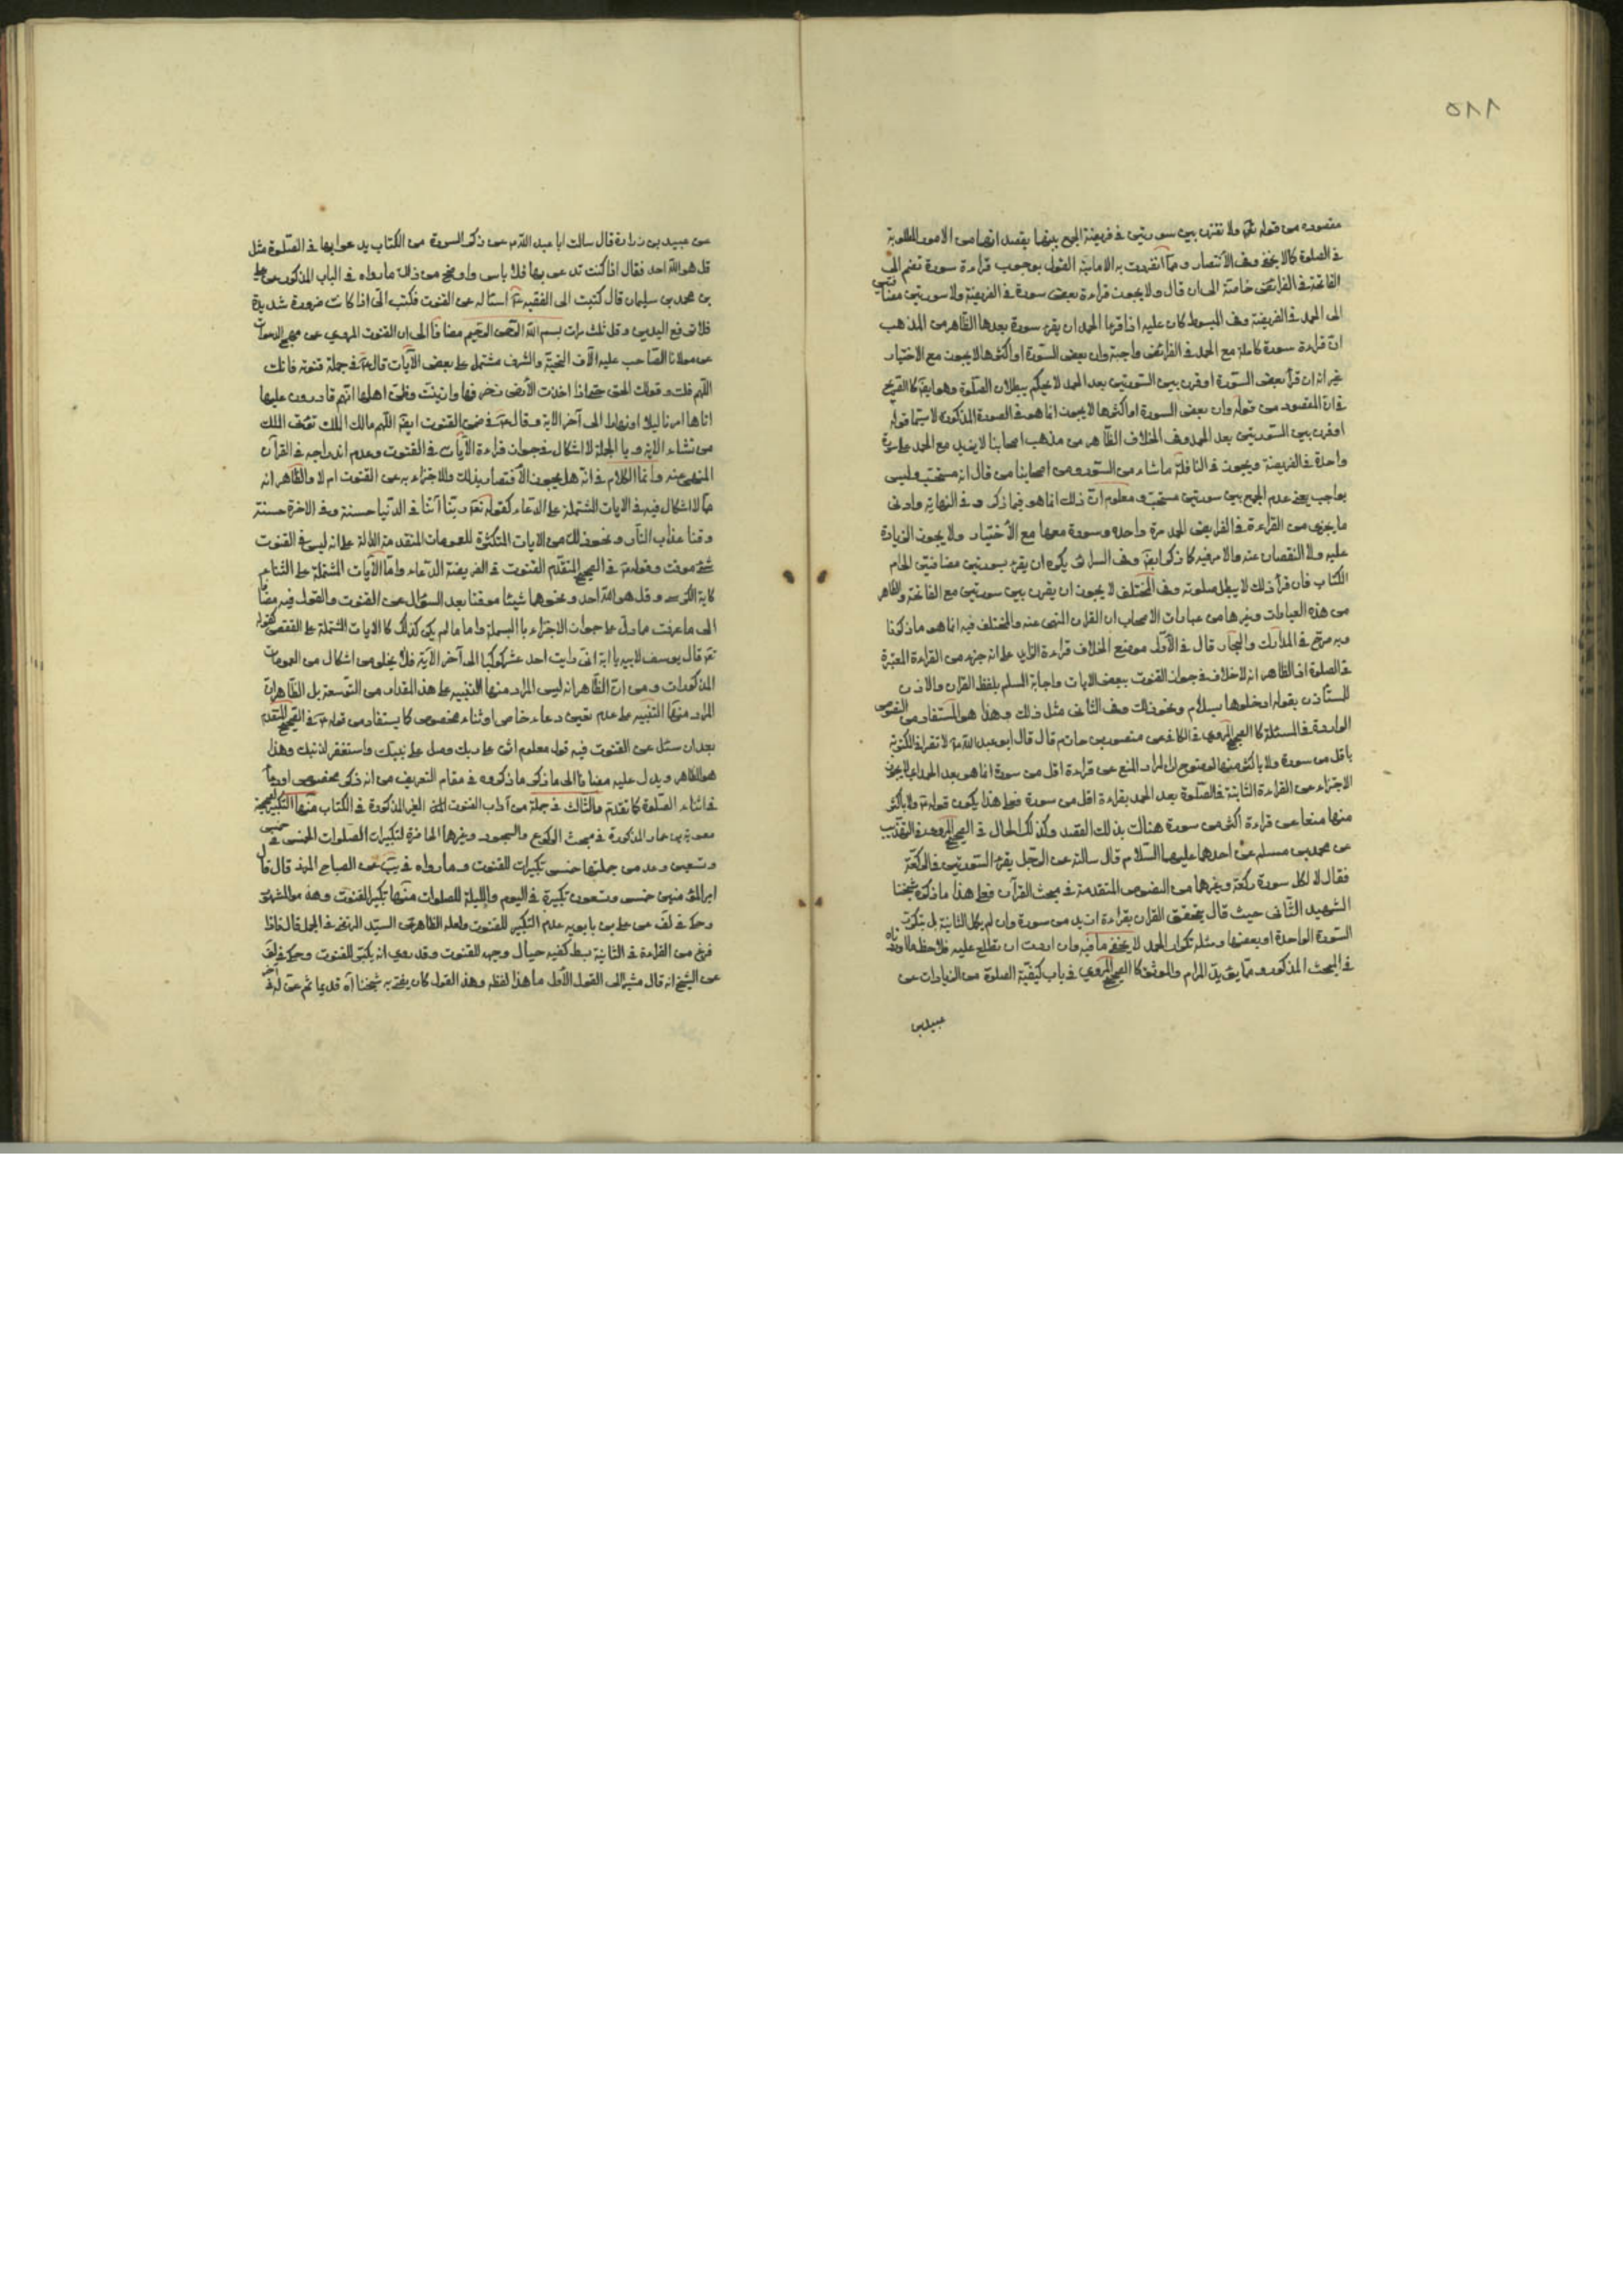 ٥٨٨
مقصوده من قوله ولا تقرن بين سورتين في فريضة الجمع بينهما بقصد انهما من الامور المطلوبة
في الصلوة كما لا يخفى وفي الانتصار ومما انفردت به الامامية القول بوجوب قراءة سورة تضم الى
الفاتحة في الفرائض خاصة الى ان قال ولا يجوز قراءة بعض سورة في الفريضة ولا سورتين مضافتين
الى الحمد في الفريضة وفي المبسوط كان عليه اذا قرء الحمد ان يقرء سورة بعدها الظاهر من المذهب
ان قراءة سورة كاملة مع الحمد في الفرائض واجبة وان بعض السورة او اكثرها لا يجوز مع الاختيار
غير انه ان قرأ بعض السورة او قرن بين السورتين بعد الحمد لا يحكم ببطلان الصلوة وهو ايضا كالصريح
في ان المقصود من قوله وان بعض السورة او اكثرها لا يجوز انما هو في الصورة المذكورة لا سيما قوله
او قرن بين السورتين بعد الحمد وفي الخلاف الظاهر من مذهب اصحابنا لا يزيد مع الحمد على سورة
واحدة في الفريضة ويجوز في النافلة ما شاء من السور ومن اصحابنا من قال انه مستحب وليس
بواجب يعني عدم الجمع بين سورتين مستحب ومعلوم ان ذلك انما هو فيما ذكر وفي النهاية وادنى
ما يجزي من القراءة في الفرايض الحمد مرة واحدة وسورة معها مع الاختيار ولا يجوز الزيادة
عليه ولا النقصان عنه والامر فيه كما ذكر ايضا وفي السرائر يكره ان يقرء بسورتين مضافتين الى ام
الكتاب فان قرأ ذلك لا يبطل صلوته وفي المختلف لا يجوز ان يقرن بين سورتين مع الفاتحة والظاهر
من هذه العبارات وغيرها من عبارات الاصحاب ان القران المنهى عنه والمختلف فيه انما هو ما ذكرنا
وبه صرح في المدارك والبحار قال في الاول موضع الخلاف قراءة الزايد على انه جزء من القراءة المعتبرة
في الصلوة اذ الظاهر انه لا خلاف في جواز القنوت ببعض الايات واجابة المسلم بلفظ القران والاذن
للمستأذن بقوله ادخلوها بسلام ونحو ذلك وفي الثاني مثل ذلك وهذا هو المستفاد من النصوص
الواردة في المسئلة كالصحيح المروي في الكافي عن منصور بن حازم قال قال ابو عبد الله لا تقرء في المكتوبة
باقل من سورة ولا باكثر منها لوضوح ان المراد المنع عن قراءة اقل من سورة انما هو بعد الحمد اي لا يجوز
الاجتزاء عن القراءة الثابتة في الصلوة بعد الحمد بقراءة اقل من سورة فعلى هذا يكون قوله ولا باكثر
منها منعا عن قراءة اكثر من سورة هنالك بذلك القصد وكذلك الحال في الصحيح المروي في التهذيب
عن محمد بن مسلم عن احدهما عليهما السلام قال سالته عن الرجل يقرء السورتين في الركعة
فقال لا لكل سورة ركعة وغيرها من النصوص المتقدمة في مبحث القرآن فعلى هذا ما ذكره شيخنا
الشهيد الثاني حيث قال يتحقق القران بقراءة ازيد من سورة وان لم يكمل الثانية بل بتكرر
السورة الواحدة او بعضها ومثله تكرار الحمد لا يخفى ما فيه وان اردت ان تطلع عليه فلاحظ ما اوردناه
في المبحث المذكور ومما يؤيد المرام والموثق كالصحيح المروي في باب كيفية الصلوة من الزيادات عن
عبيد بن
عن عبيد بن زرارة قال سالت ابا عبد الله عن ذكر السورة من الكتاب يدعو بها في الصلوة مثل
قل هو الله احد فقال اذا كنت تدعو بها فلا باس واوضح من ذلك ما رواه في الباب المذكور عن علي
بن محمد بن سليمان قال كتبت الى الفقيه اساله عن القنوت فكتب الي اذا كانت ضرورة شديدة
فلا ترفع اليدين وقل ثلث مرات بسم الله الرحمن الرحيم مضافا الى ان القنوت المروي عن مهج الدعوات
عن مولانا الصاحب عليه الاف التحية والشرف مشتمل على بعض الآيات قال في جملة قنوته فانك
اللهم قلت وقولك الحق حتى اذا اخذت الارض زخرفها وازينت وظن اهلها انهم قادرون عليها
اتاها امرنا ليلا او نهارا الى آخر الاية وقال في ضمن القنوت ايضا اللهم مالك الملك تؤتي الملك
من تشاء الاية وبالجملة لا اشكال في جواز قراءة الآيات في القنوت وعدم اندراجه في القرآن
المنهى عنه وانما الكلام في انه هل يجوز الاقتصار بذلك والاجتزاء به عن القنوت ام لا والظاهر انه
مما لا اشكال فيه في الايات المشتملة على الدعاء كقوله ربنا آتنا في الدنيا حسنة وفي الاخرة حسنة
وقنا عذاب النار ونحو ذلك من الايات المتكثرة للعمومات المتقدمة الدالة على انه ليس في القنوت
شئ موقت وقوله في الصحيح المتقدم القنوت في الفريضة الدعاء واما الآيات المشتملة على الثناء
كاية الكرسي وقل هو الله احد ونحوها شيئا موقتا بعد السؤال عن القنوت والقول فيه مضافا
الى ما عرفت مما دل على جواز الاجتزاء بالبسملة واما ما لم يكن كذلك كالايات المشتملة على القصص كقوله
قال يوسف لابيه يا ابة اني رايت احد عشر كوكبا الى آخر الآية فلا يخلو من اشكال من العمومات
المذكورات ومن ان الظاهر انه ليس المراد منها التنبيه على هذا المقدار من التوسعة بل الظاهر ان
المراد منها التنبيه على عدم تعيين دعاء خاص او ثناء مخصوص كما يستفاد من قوله في الصحيح المتقدم
بعد ان سئل عن القنوت فيه قول معلوم اثن على ربك وصل على نبيك واستغفر لذنبك وهذا
هو الظاهر ويدل عليه مضافا الى ما ذكر ما ذكروه في مقام التعريف من انه ذكر مخصوص او دعاء
في اثناء الصلوة كما تقدم والثالث في جملة من آداب القنوت الغير المذكورة في الكتاب منها التكبير لصحيحة
معوية بن عمار المذكورة في مبحث الركوع والسجود وغيرها الحاضرة لتكبيرات الصلوات الخمس في خمس
وتسعين وعد من جملتها خمس تكبيرات للقنوت وما رواه في عن الصباح المزني قال قال
امير المؤمنين خمس وتسعون تكبيرة في اليوم والليلة للصلوات منها تكبير القنوت وهذا هو المشهور
وحكى في لف عن علي بن بابويه عدم التكبير للقنوت ولعله الظاهر من السيد المرتضى في الجمل قال فاذا
فرغ من القراءة في الثانية بسط كفيه حيال وجهه للقنوت وقد روي انه يكبر للقنوت وحكى في لف
عن الشيخ انه قال مشيرا الى القول الاول ما هذا لفظه وهذا القول كان يفتي به شيخنا قديما ثم عن له في